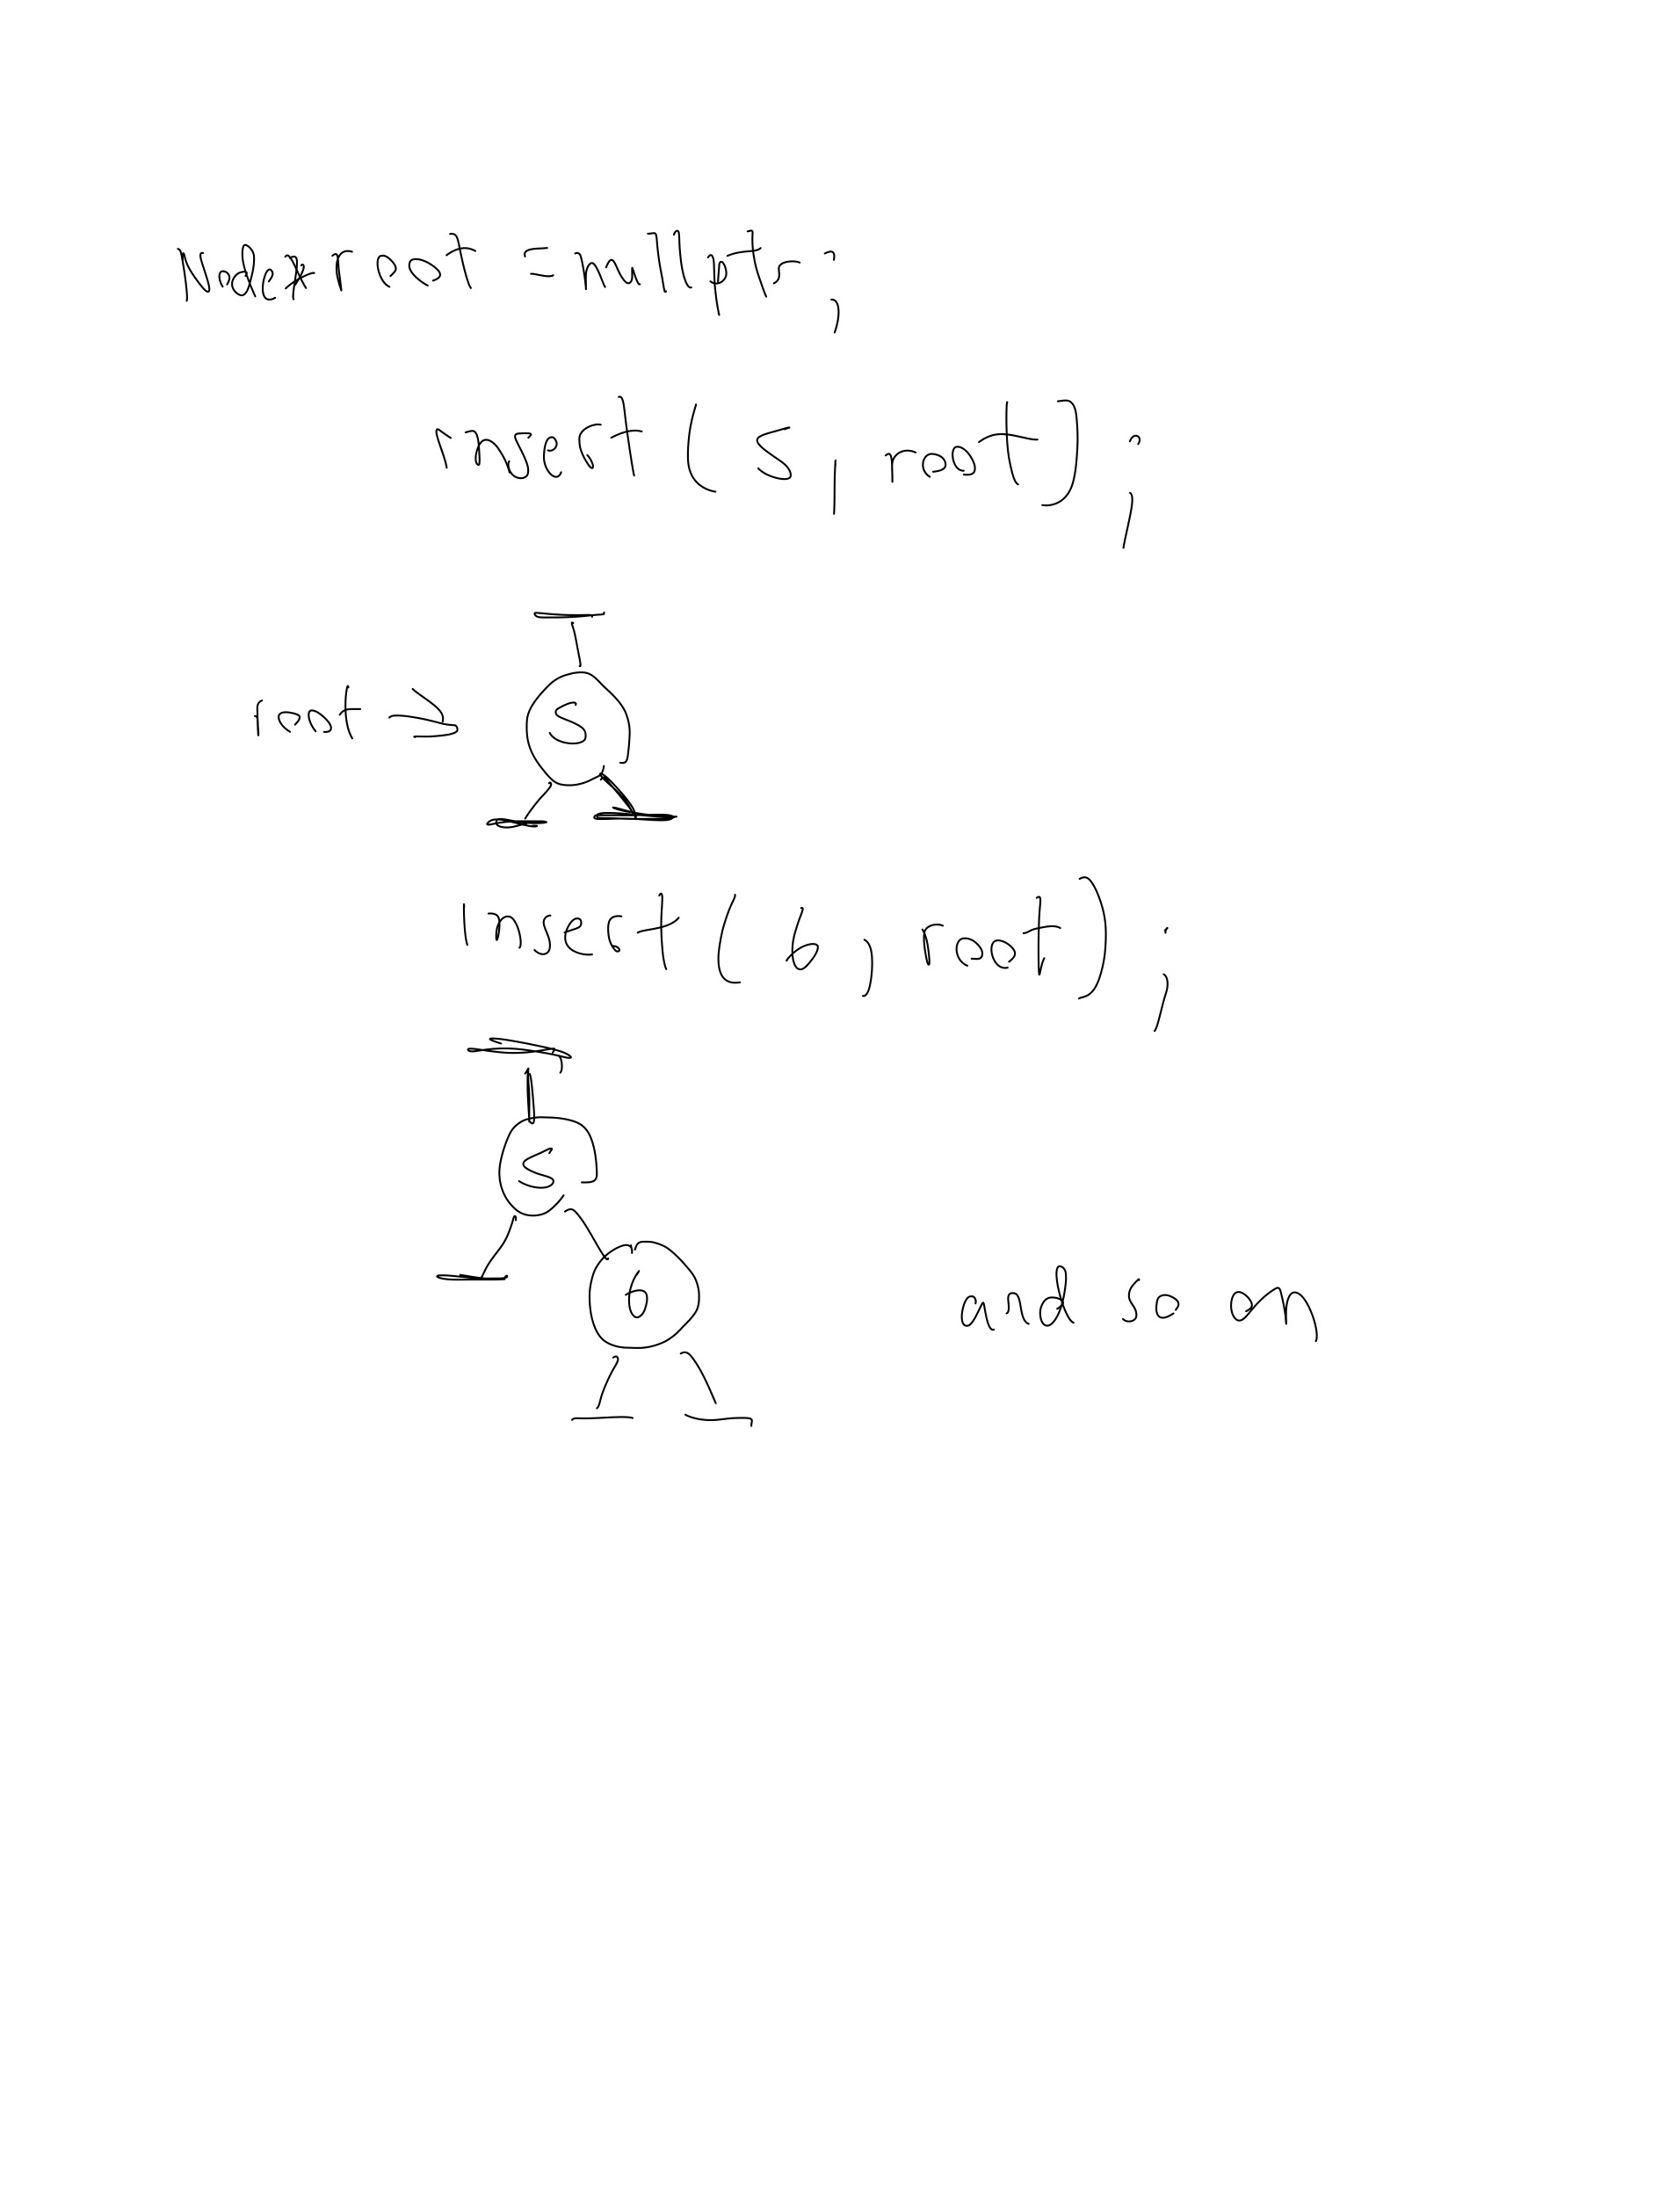 Node* root = nullptr;
insert(5, root);
root → 5
insert(6, root);
5
6
and so on